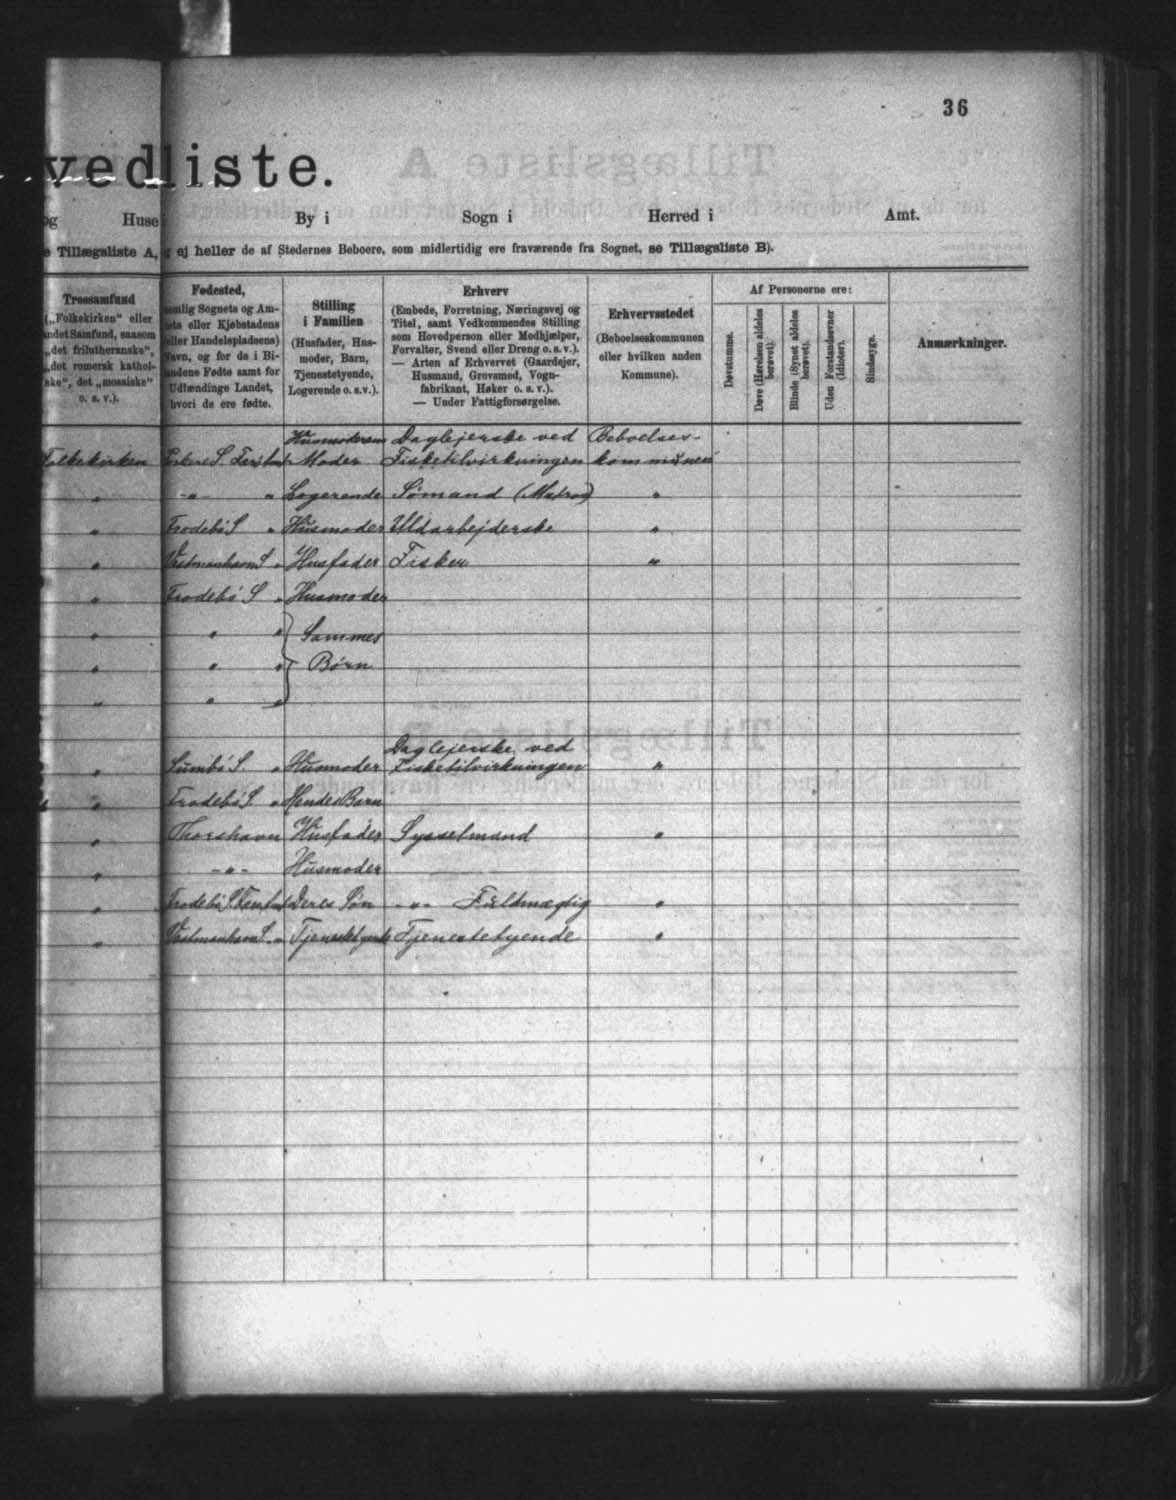 36
vedliste.
og Huse By i Sogn i Herred i Amt.
e Tillægsliste A, ej heller de af Stedernes Beboere, som midlertidig ere fraværende fra Sognet, se Tillægsliste B).
Trossamfund
(„Folkekirken“ eller
andet Samfund, saasom
„det frilutheranske“,
„det romersk kathol-
ske“, det „mosaiske“
o. s. v.).
Fødested,
nemlig Sognets og Am-
ets eller Kjøbstadens
(eller Handelspladsens)
Navn, og for de i Bi-
landene Fødte samt for
Udlændinge Landet,
hvori de ere fødte.
Stilling
i Familien
(Husfader, Hus-
moder, Barn,
Tjenestetyende,
Logerende o. s. v.).
Erhverv
(Embede, Forretning, Næringsvej og
Titel, samt Vedkommendes Stilling
som Hovedperson eller Medhjælper,
Forvalter, Svend eller Dreng o. s. v.).
— Arten af Erhvervet (Gaardejer,
Husmand, Grovsmed, Vogn-
fabrikant, Høker o. s. v.).
— Under Fattigforsørgelse.
Erhvervsstedet
(Beboelseskommunen
eller hvilken anden
Kommune).
Af Personerne ere:
Døvstumme.
Døve (Hørelsen aldeles
berøvet).
Blinde (Synet aldeles
berøvet).
Uden Forstandsevner
(Idioter).
Sindssyge.
Anmærkninger.
Husmoderens Daglejerske ved Beboelses-
Folkekirken Moder Fisketilvirkningen kommunen
" -"- " Logerende Sømand (Matros) "
" Frodebö S " Husmoder Uldarbejderske "
" Vestmanhavn S " Husfader Fisker "
" Frodebö S " Husmoder
" " " Sammes
" " " Børn
" " "
Daglejerske ved
" Sumbö S. " Husmoder Fisketilvirkningen "
" Frodebö S " Hendes Barn
" Thorshavn Husfader Sysselmand "
" -"- Husmoder
" Frodebö S. Deres Søn -"- Fuldmægtig "
" Vestmanhavn S. " Tjenestetyende Tjenestetyende "